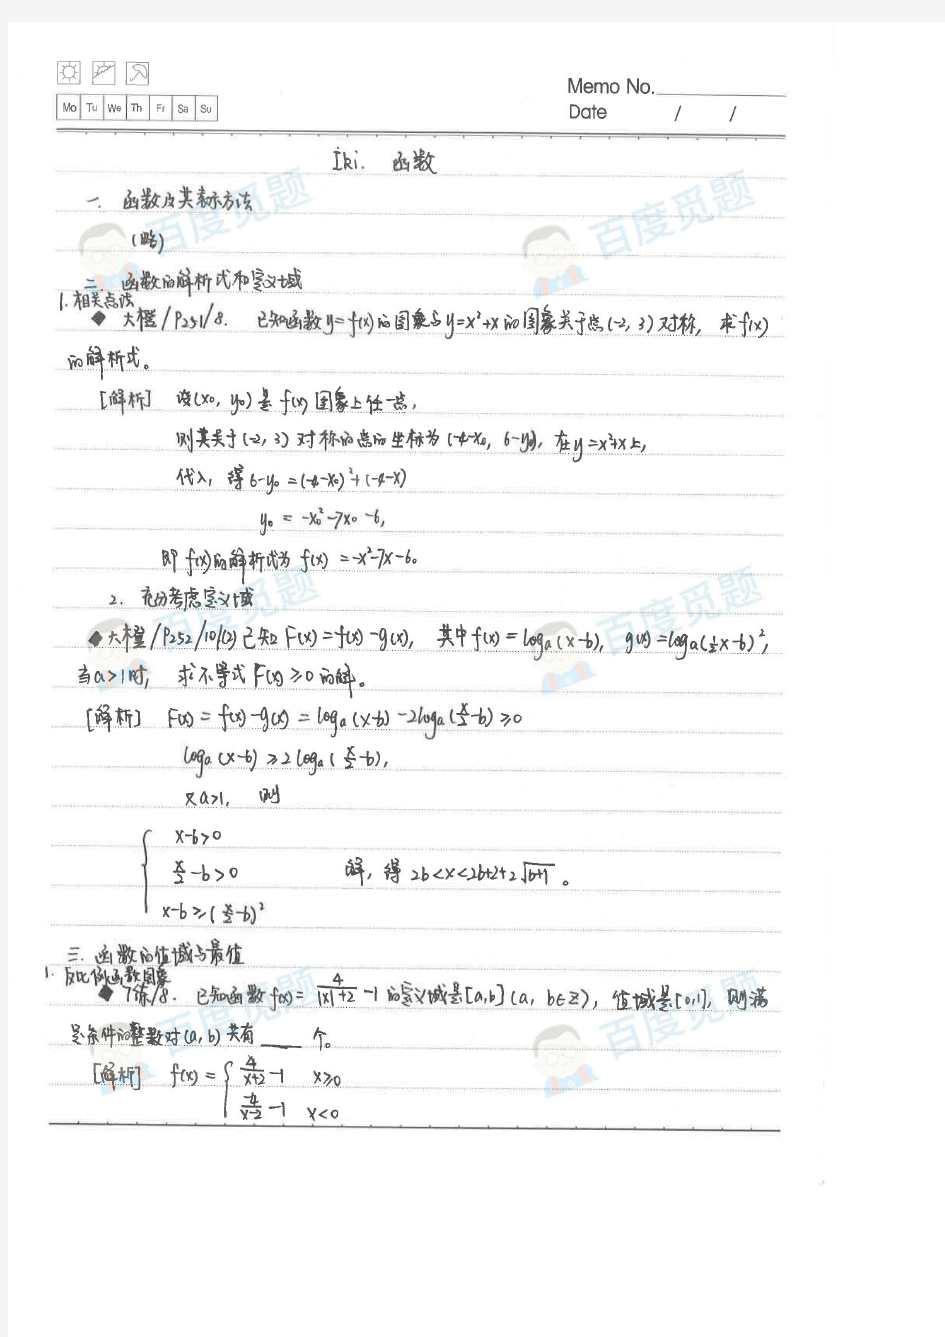 Mo Tu We Th Fr Sa Su
Memo No.
Date / /
函数
一. 函数及其表示方法
(略)
二. 函数的解析式和定义域
1. 相关点法
◆大橙/P251/8. 已知函数y=f(x)的图象与y=x²+x的图象关于点(-2, 3)对称, 求f(x)
的解析式。
[解析] 设(x₀, y₀)是f(x)图象上任一点,
则其关于(-2, 3)对称的点的坐标为(-4-x₀, 6-y₀), 在y=x²+x上,
代入, 得6-y₀=(-4-x₀)²+(-4-x)
y₀=-x₀²-7x₀-6,
即f(x)的解析式为f(x)=-x²-7x-6。
2. 充分考虑定义域
◆大橙/P252/10/(2) 已知F(x)=f(x)-g(x), 其中f(x)=logₐ(x-b), g(x)=logₐ(½x-b)²,
当a>1时, 求不等式F(x)≥0的解。
[解析] F(x)=f(x)-g(x)=logₐ(x-b)-2logₐ(x/2-b)≥0
logₐ(x-b)≥2logₐ(x/2-b),
又a>1, 则
x-b>0
x/2-b>0 解, 得2b<x<2b+2+2√(b+1)。
x-b≥(x/2-b)²
三. 函数的值域与最值
1. 反比例函数图象
◆7练/8. 已知函数f(x)=4/(|x|+2)-1的定义域是[a,b](a, b∈Z), 值域是[0,1], 则满
足条件的整数对(a, b)共有____个。
[解析] f(x)={ 4/(x+2)-1 x≥0
-4/(x-2)-1 x<0
百度觅题
百度觅题
百度觅题
百度觅题
百度觅题
百度觅题